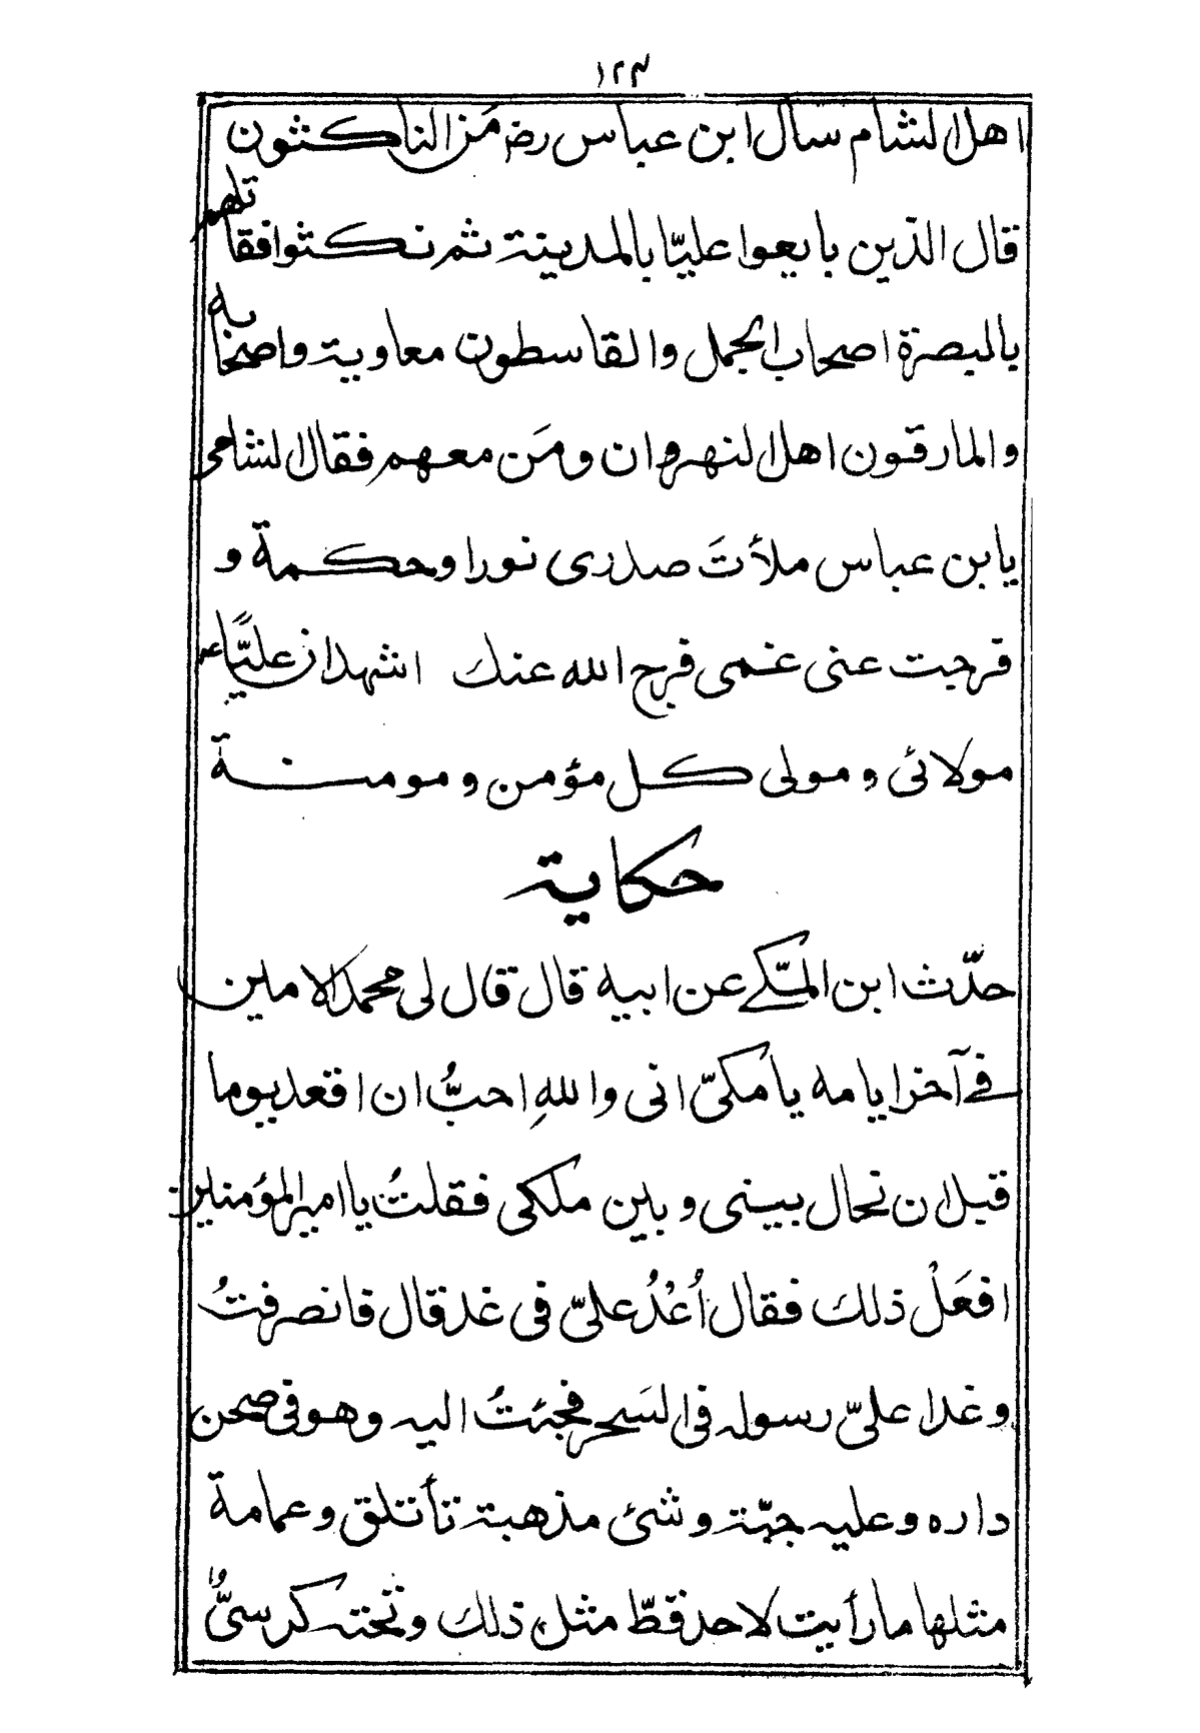 ١٢٣
اهل الشام سأل ابن عباس رض مَن الناكثون
قال الذين بايعوا عليّا بالمدينة ثم نكثوا فقاتلهم
بالبصرة اصحاب الجمل والقاسطون معاوية واصحابه
والمارقون اهل النهروان ومَن معهم فقال الشامى
يابن عباس ملأتَ صدرى نورا وحكمة و
فرجت عنى غمى فرج الله عنك اشهد ان عليًّا
مولائى ومولى كل مؤمن ومومنة
حكاية
حدّث ابن المكّے عن ابيه قال قال لى محمد الامين
فے آخر ايامه يا مكىّ انى واللهِ احبُّ ان اقعد يوما
قبل ان تحال بينى وبين ملكى فقلتُ يا امير المؤمنين
افعَلْ ذلك فقال اُغْدُ علىّ فى غد قال فانصرفتُ
وغدا علىّ رسوله فى السَحر فجئتُ اليه وهو فى صحن
داره وعليه جبّة وشئ مذهبة تأتلق وعمامة
مثلها ما رأيت لاحد قطّ مثل ذلك وتحته كرسىُّ